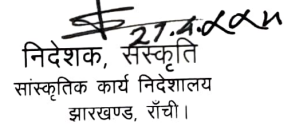 27.4.2021
निदेशक, संस्कृति
सांस्कृतिक कार्य निदेशालय
झारखण्ड, राँची।